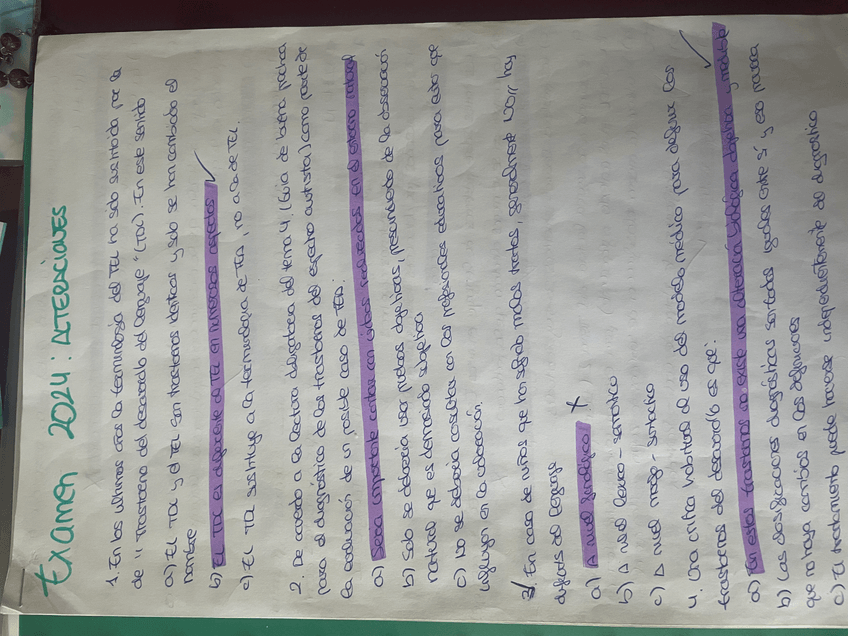 Examen 2024: ALTERACIONES
1. En los ultimos años la terminología del TEL ha sido sustituida por la
de "Trastorno del desarrollo del lenguaje" (TDL). En este sentido
a) El TDL y el TEL son trastornos identicos y solo se han cambiado el
nombre
b) El TDL es diferente al TEL en numerosos aspectos ✓
c) El TDL sustituye a la terminología de TEA, no a la de TEL.
2. De acuerdo a la lectura obligatoria del tema 4. (Guia de buena práctica
para el diagnostico de los trastornos del espectro autista) como parte de
la evaluación de un posible caso de TEA:
a) Sería importante contar con videos realizados en el entorno natural
b) Solo se deberia usar pruebas objetivas, prescindiendo de la observación
natural que es demasiado subjetiva
c) No se debería consultar con los profesionales educativos para evitar que
influyan en la valoración.
3. En caso de niños que han sufrido malos tratos, generalmente NO hay
deficits del lenguaje
a) A nivel fonológico X
b) A nivel léxico-semántico
c) A nivel morfo-sintactico
4. Una critica habitual al uso del modelo médico para definir los
trastornos del desarrollo es que: ✓
a) En estos trastornos no existe una alteración biológica objetiva y medible
b) Las clasificaciones diagnósticas son todas iguales entre sí y eso provoca
que no haya cambios en las definiciones
c) El tratamiento puede hacerse independientemente del diagnostico